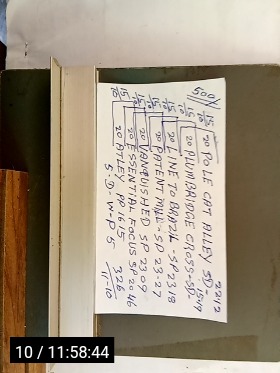 500/
15/10 20 POLE CAT ALLEY SD- 2212
15/10 20 PLUMBRIDGE CROSS-SD- 1519
15/10 20 LINE TO BRAZIL -SP 2318
15/10 20 PATENT MILL-SD 23-27
15/10 20 VANQUISHED SP 2309
15/10 20 ESSENTIAL FOCUS SP 2046
15/10 20 ATLEY PP 1615
S-D-W-P 5 326
11-10
10 / 11:58:44